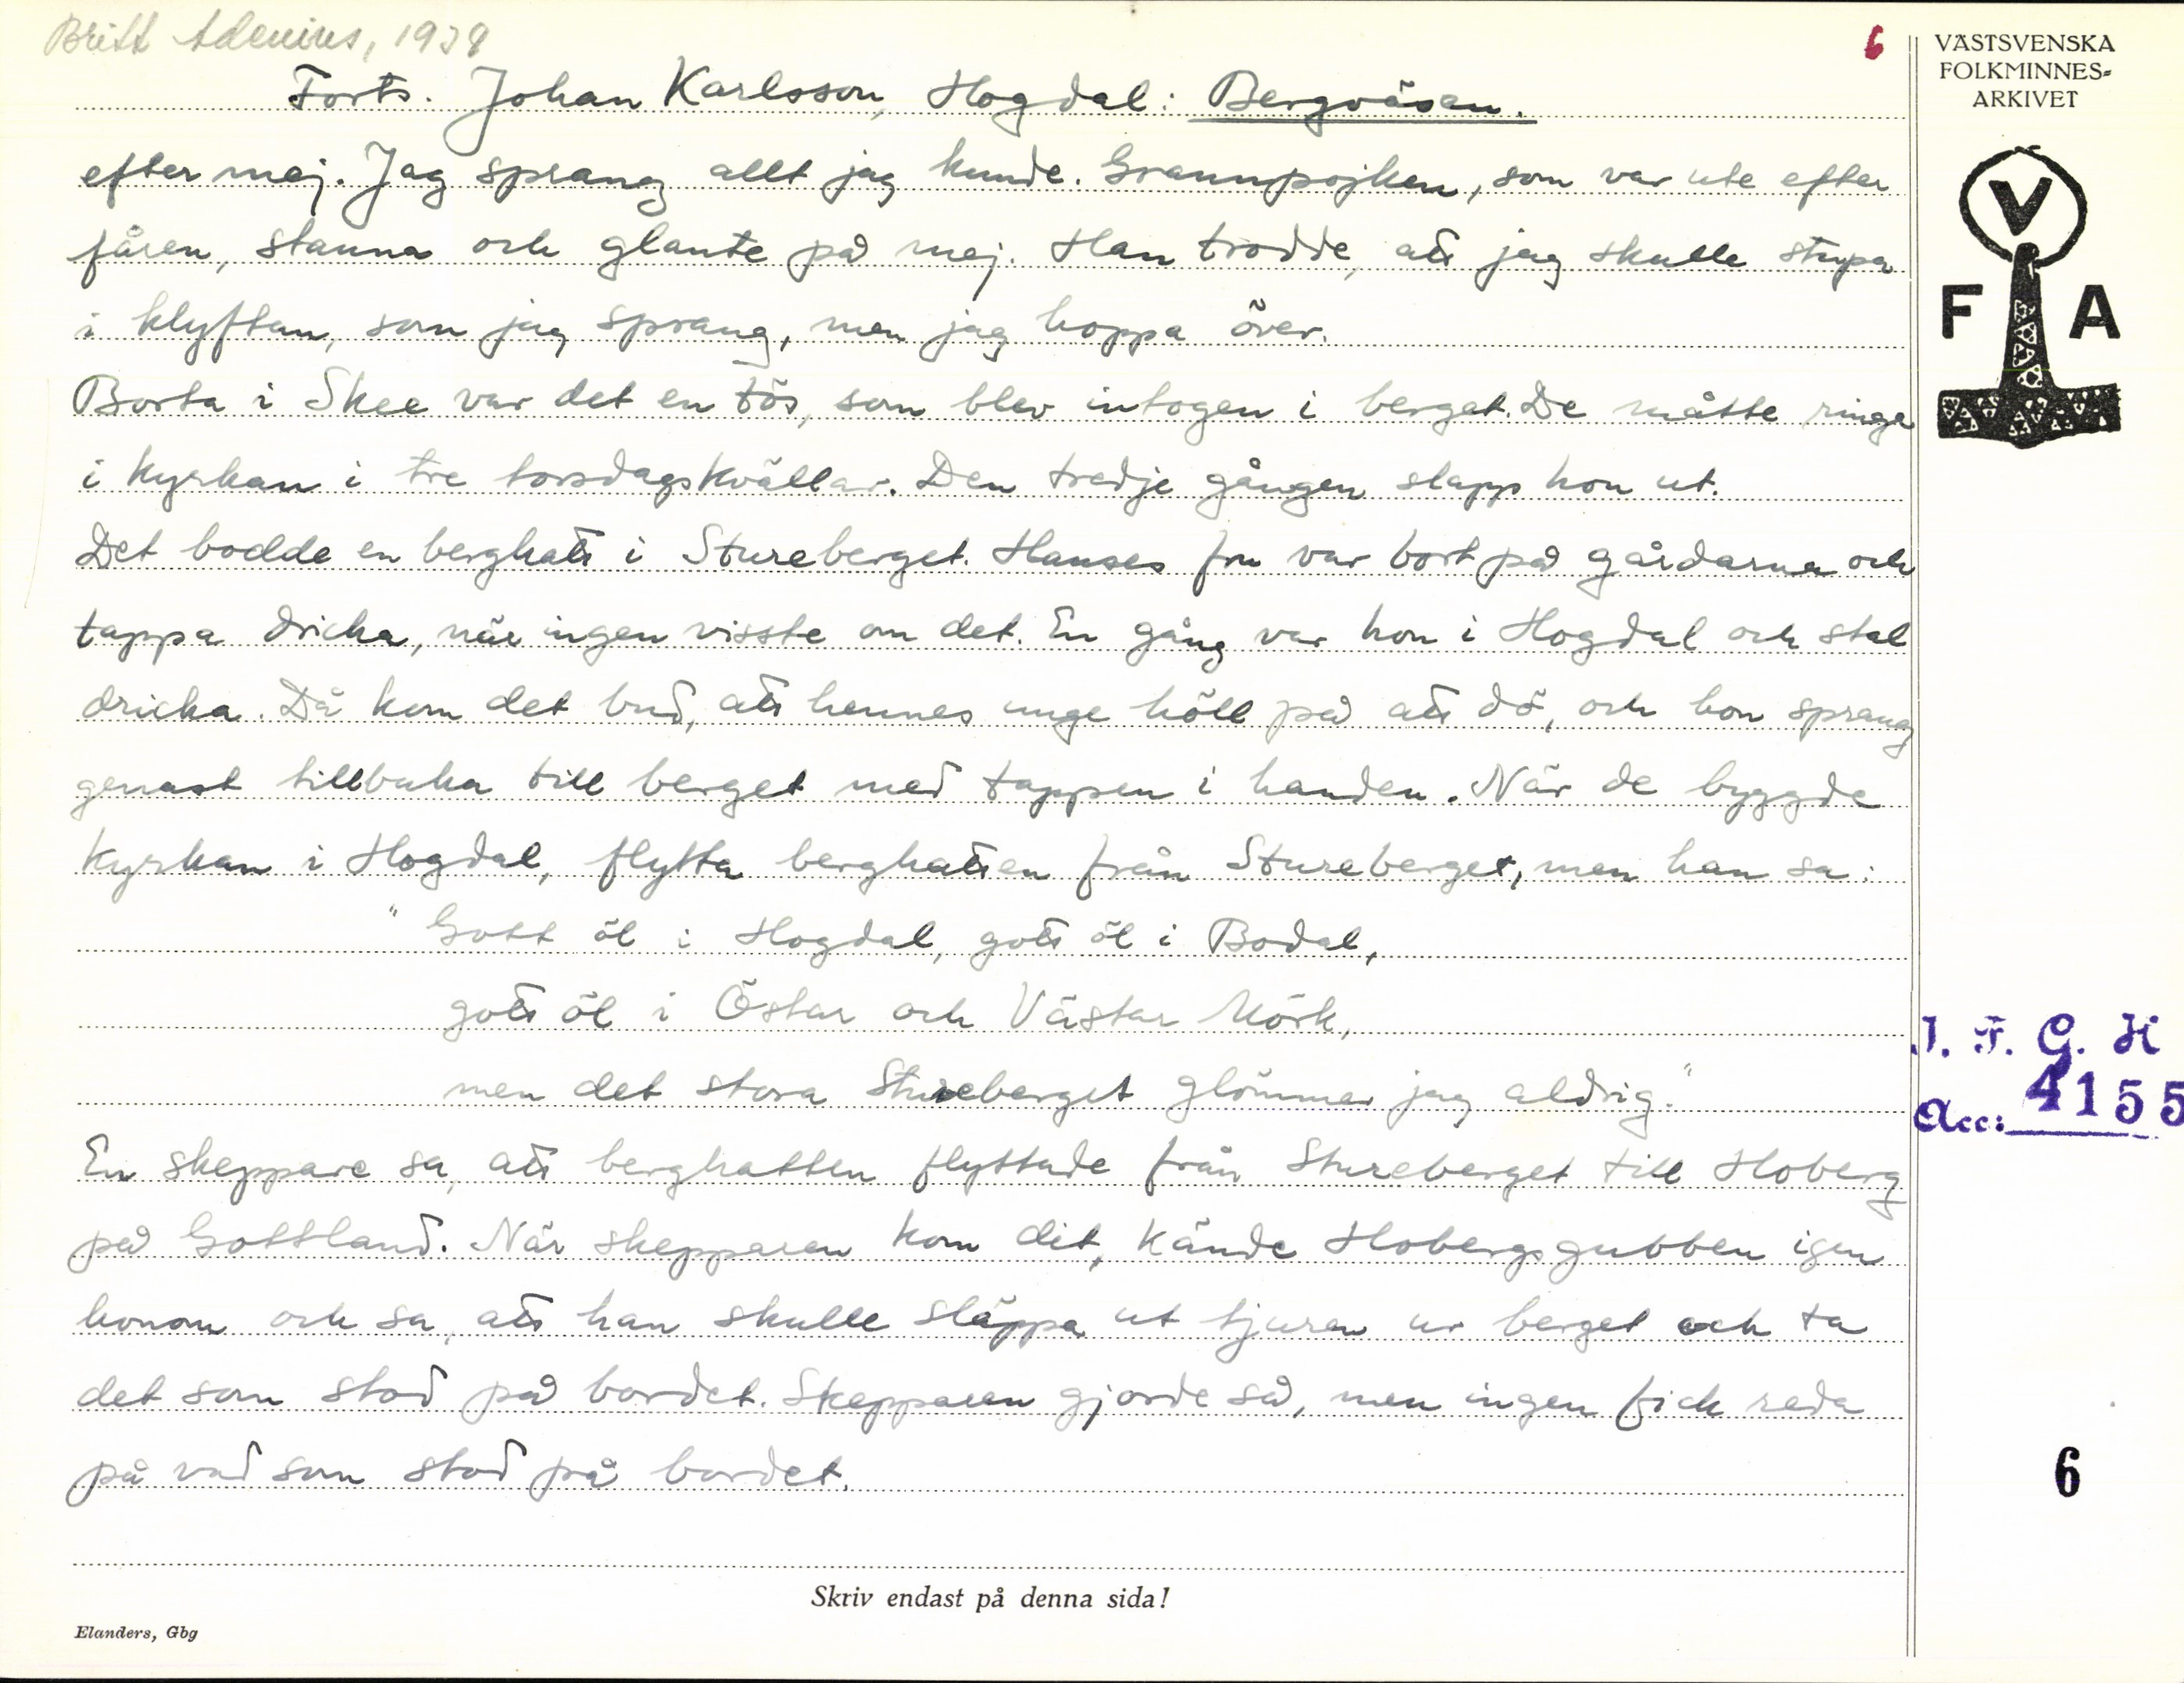 Britt Adenius, 1938
6
Forts. Johan Karlsson, Hogdal: Bergväsen.
efter mej. Jag sprang allt jag kunde. Grannpojken, som var ute efter
fåren, stanna och glante på mej. Han trodde, att jag skulle stupa
i klyftan, som jag sprang, men jag hoppa över.
Borta i Skee var det en tös, som blev intogen i berget. De måtte ringa
i kyrkan i tre torsdagskvällar. Den tredje gången slapp hon ut.
Det bodde en berghatt i Stureberget. Hanses fru var bort på gårdarna och
tappa dricka, när ingen visste om det. En gång var hon i Hogdal och stal
dricka. Då kom det bud, att hennes unge höll på att dö, och hon sprang
genast tillbaka till berget med tappen i handen. När de byggde
kyrkan i Hogdal, flytta berghatten från Stureberget, men han sa:
"Gott öl i Hogdal, gott öl i Bodal,
gott öl i Östar och Västar Mörk,
men det stora Stureberget glömmer jag aldrig."
En skeppare sa, att berghatten flyttade från Stureberget till Hoberg
på Gottland. När skepparen kom dit, kände Hobergsgubben igen
honom och sa, att han skulle släppa ut tjuren ur berget och ta
det som stod på bordet. Skepparen gjorde så, men ingen fick reda
på vad som stod på bordet.
Skriv endast på denna sida!
Elanders, Gbg
VÄSTSVENSKA
FOLKMINNES-
ARKIVET
V
F A
I. F. G. H
Acc: 4155
6